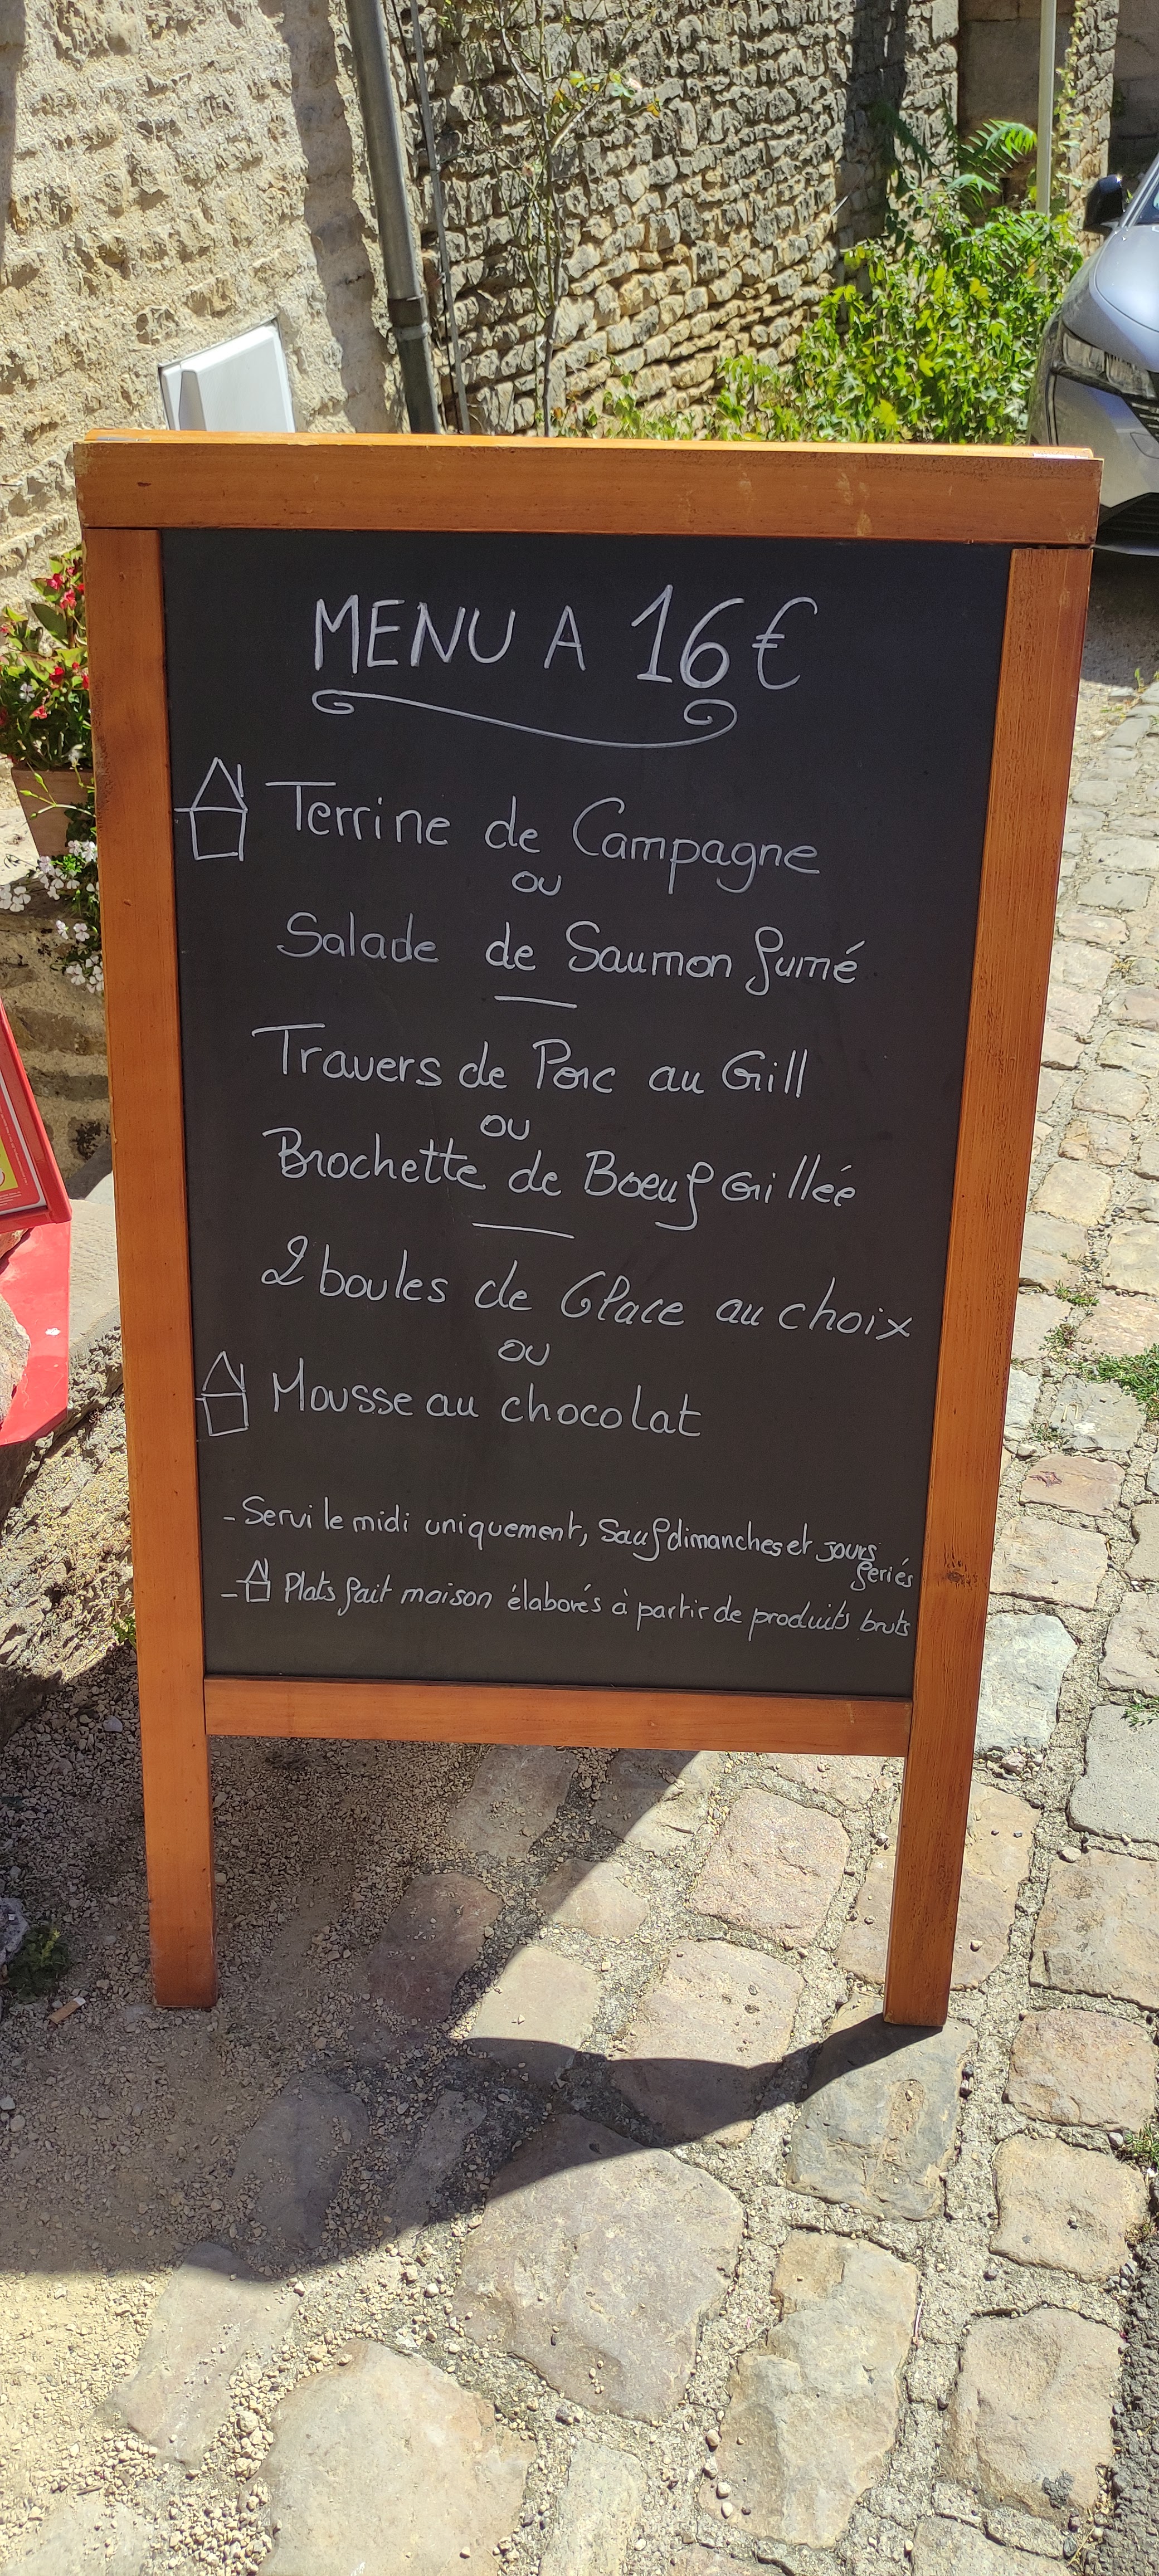 MENU A 16€
Terrine de Campagne
ou
Salade de Saumon fumé
Travers de Porc au Grill
ou
Brochette de Boeuf Grillée
2 boules de Glace au choix
ou
Mousse au chocolat
- Servi le midi uniquement, Sauf dimanches et jours
feriés
- Plats fait maison élaborés à partir de produits bruts